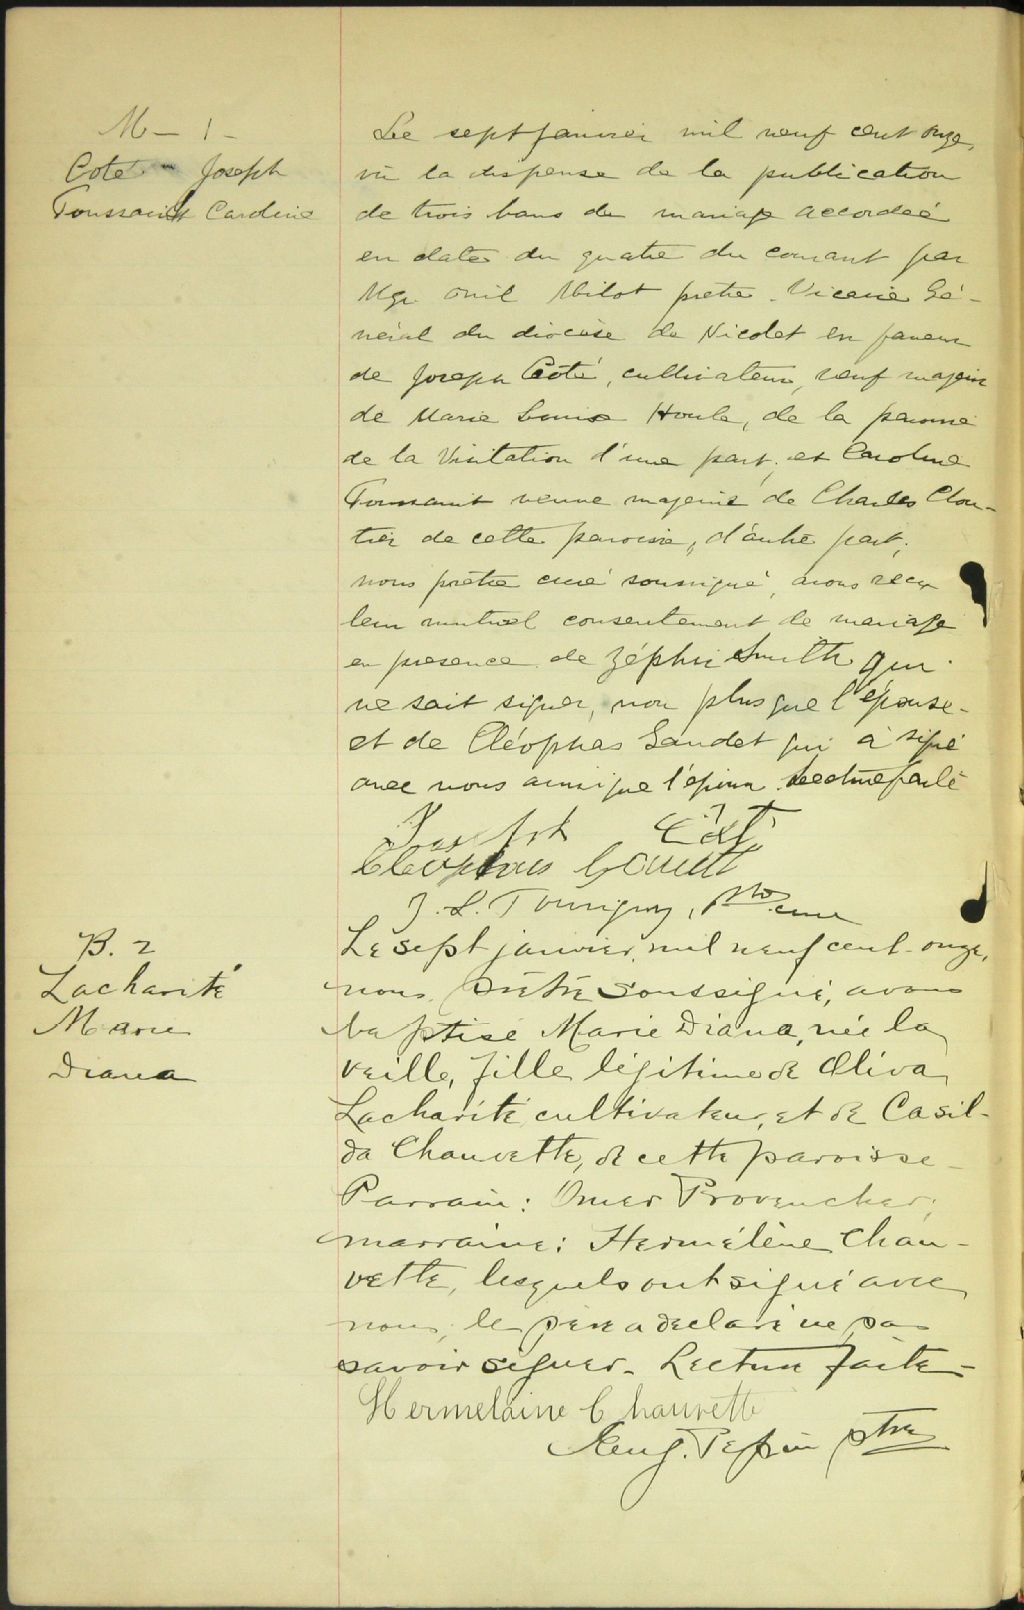 M - 1 -
Coté - Joseph
Toussaint Caroline
Le sept janvier mil neuf cent onze,
vû la dispense de la publication
de trois bans de mariage accordée
en date du quatre du courant par
Mgr Onil Milot prêtre Vicaire Gé-
néral du diocèse de Nicolet en faveur
de Joseph Coté, cultivateur, veuf majeur
de Marie Louise Houle, de la paroisse
de la Visitation d'une part; et Caroline
Toussaint veuve majeure de Charles Clou-
tier de cette paroisse, d'autre part;
nous prêtre curé soussigné, avons reçu
leur mutuel consentement de mariage
en présence de Zéphir Smith qui
ne sait signer, non plus que l'épouse-
et de Cléophas Gaudet qui a signé
avec nous ainsi que l'époux. Lecture faite
Joseph Côté
Cléophas Gaudet
J. L. Tourigny, Ptre curé
B. 2
Lacharité
Marie
Diana
Le sept janvier, mil neuf cent onze,
nous, prêtre soussigné, avons
baptisé Marie Diana, née la
veille, fille légitime de Oliva
Lacharité, cultivateur, et de Casil-
da Chauvette, de cette paroisse-
Parrain: Omer Provencher;
marraine: Hermélène Chau-
vette, lesquels ont signé avec
nous; le père a déclaré ne pas
savoir signer. Lecture faite-
Hermelaine Chauvette
Pepin ptre